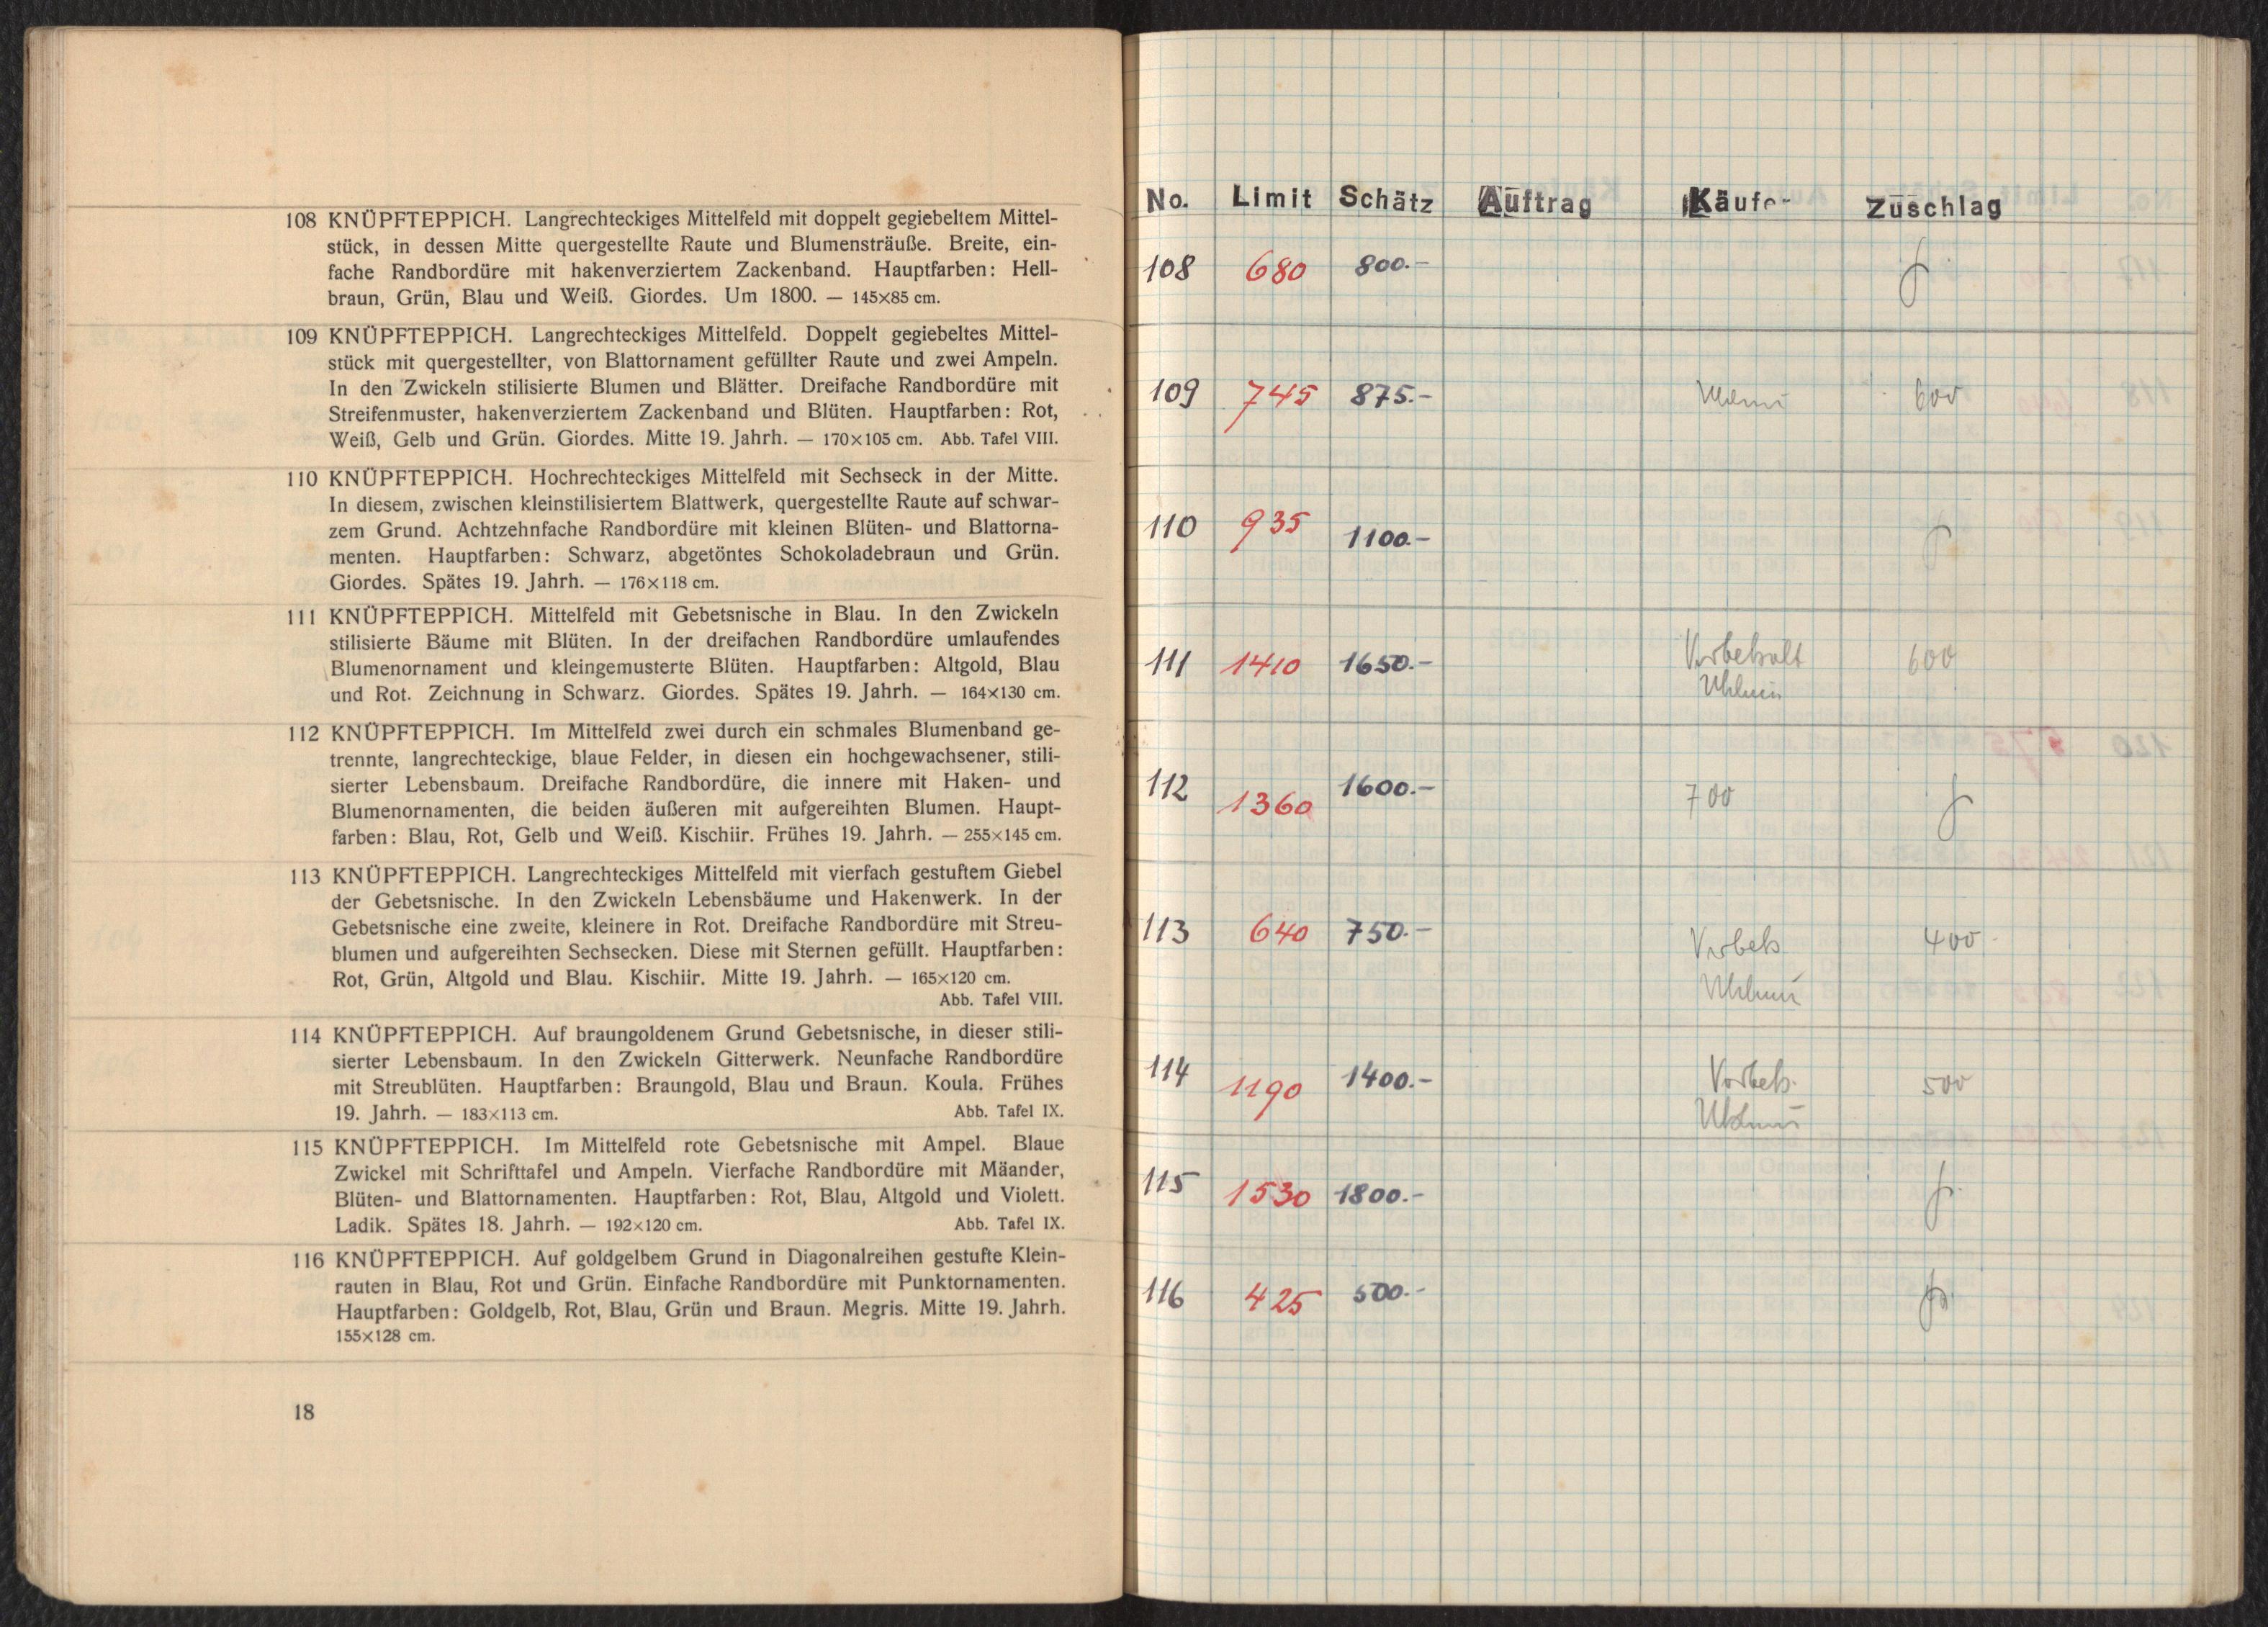 108 KNÜPFTEPPICH. Langrechteckiges Mittelfeld mit doppelt gegiebeltem Mittel-
stück, in dessen Mitte quergestellte Raute und Blumensträuße. Breite, ein-
fache Randbordüre mit hakenverziertem Zackenband. Hauptfarben: Hell-
braun, Grün, Blau und Weiß. Giordes. Um 1800. — 145×85 cm.
109 KNÜPFTEPPICH. Langrechteckiges Mittelfeld. Doppelt gegiebeltes Mittel-
stück mit quergestellter, von Blattornament gefüllter Raute und zwei Ampeln.
In den Zwickeln stilisierte Blumen und Blätter. Dreifache Randbordüre mit
Streifenmuster, hakenverziertem Zackenband und Blüten. Hauptfarben: Rot,
Weiß, Gelb und Grün. Giordes. Mitte 19. Jahrh. — 170×105 cm. Abb. Tafel VIII.
110 KNÜPFTEPPICH. Hochrechteckiges Mittelfeld mit Sechseck in der Mitte.
In diesem, zwischen kleinstilisiertem Blattwerk, quergestellte Raute auf schwar-
zem Grund. Achtzehnfache Randbordüre mit kleinen Blüten- und Blattorna-
menten. Hauptfarben: Schwarz, abgetöntes Schokoladebraun und Grün.
Giordes. Spätes 19. Jahrh. — 176×118 cm.
111 KNÜPFTEPPICH. Mittelfeld mit Gebetsnische in Blau. In den Zwickeln
stilisierte Bäume mit Blüten. In der dreifachen Randbordüre umlaufendes
Blumenornament und kleingemusterte Blüten. Hauptfarben: Altgold, Blau
und Rot. Zeichnung in Schwarz. Giordes. Spätes 19. Jahrh. — 164×130 cm.
112 KNÜPFTEPPICH. Im Mittelfeld zwei durch ein schmales Blumenband ge-
trennte, langrechteckige, blaue Felder, in diesen ein hochgewachsener, stili-
sierter Lebensbaum. Dreifache Randbordüre, die innere mit Haken- und
Blumenornamenten, die beiden äußeren mit aufgereihten Blumen. Haupt-
farben: Blau, Rot, Gelb und Weiß. Kischiir. Frühes 19. Jahrh. — 255×145 cm.
113 KNÜPFTEPPICH. Langrechteckiges Mittelfeld mit vierfach gestuftem Giebel
der Gebetsnische. In den Zwickeln Lebensbäume und Hakenwerk. In der
Gebetsnische eine zweite, kleinere in Rot. Dreifache Randbordüre mit Streu-
blumen und aufgereihten Sechsecken. Diese mit Sternen gefüllt. Hauptfarben:
Rot, Grün, Altgold und Blau. Kischiir. Mitte 19. Jahrh. — 165×120 cm.
Abb. Tafel VIII.
114 KNÜPFTEPPICH. Auf braungoldenem Grund Gebetsnische, in dieser stili-
sierter Lebensbaum. In den Zwickeln Gitterwerk. Neunfache Randbordüre
mit Streublüten. Hauptfarben: Braungold, Blau und Braun. Koula. Frühes
19. Jahrh. — 183×113 cm. Abb. Tafel IX.
115 KNÜPFTEPPICH. Im Mittelfeld rote Gebetsnische mit Ampel. Blaue
Zwickel mit Schrifttafel und Ampeln. Vierfache Randbordüre mit Mäander,
Blüten- und Blattornamenten. Hauptfarben: Rot, Blau, Altgold und Violett.
Ladik. Spätes 18. Jahrh. — 192×120 cm. Abb. Tafel IX.
116 KNÜPFTEPPICH. Auf goldgelbem Grund in Diagonalreihen gestufte Klein-
rauten in Blau, Rot und Grün. Einfache Randbordüre mit Punktornamenten.
Hauptfarben: Goldgelb, Rot, Blau, Grün und Braun. Megris. Mitte 19. Jahrh.
155×128 cm.
18
No. Limit Schätz Auftrag Käufer Zuschlag
108 680 800.-
109 745 875.- 600
110 935 1100.-
111 1410 1650.- Vorbehalt 600
112 1360 1600.- 700
113 640 750.- Vorbeh. 400
114 1190 1400.- Vorbeh. 500
115 1530 1800.-
116 425 500.-